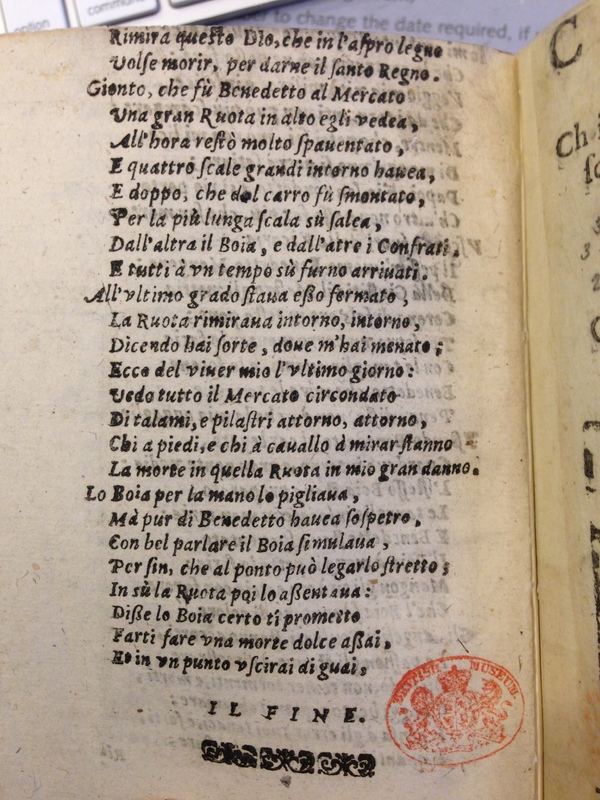 option
commun
ber to change the date required, if
Rimira queſto Dio, che in l'aſpro legno
Volſe morir, per darne il ſanto Regno.
Gionto, che fù Benedetto al Mercato
Una gran Ruota in alto egli vedea,
All'hora reſtò molto ſpauentato,
E quattro ſcale grandi intorno hauea,
E doppo, che del carro fù ſmontato,
Per la più lunga ſcala sù ſalea,
Dall'altra il Boia, e dall'atre i Confrati.
E tutti à vn tempo sù furno arriuati.
All'vltimo grado ſtaua eßo fermato,
La Ruota rimiraua intorno, intorno,
Dicendo hai ſorte, doue m'hai menato;
Ecco del viuer mio l'vltimo giorno:
Uedo tutto il Mercato circondato
Di talami, e pilaſtri attorno, attorno,
Chi a piedi, e chi à cauallo à mirar ſtanno
La morte in quella Ruota in mio gran danno.
Lo Boia per la mano lo pigliaua,
Mà pur di Benedetto hauea ſoſpetto,
Con bel parlare il Boia ſimulaua,
Per fin, che al ponto può legarlo ſtretto;
In sù la Ruota poi lo aßentaua:
Diße lo Boia certo ti prometto
Farti fare vna morte dolce aßai,
Et in vn punto vſcirai di guai,
IL FINE.
BRITISH MUSEUM
C
Ch